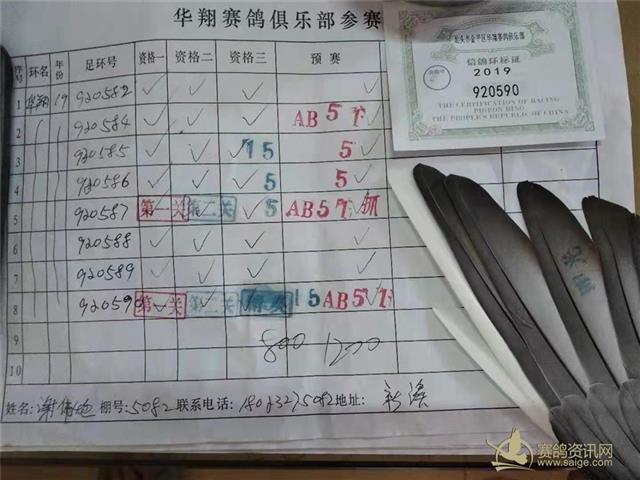 华翔赛鸽俱乐部参赛
序号 环名 年份 足环号 资格一 资格二 资格三 预赛
1 华翔 19 920582 ✓ ✓ ✓
2 920584 ✓ ✓ ✓ AB 5
3 920585 ✓ ✓ 15 5 ✓
4 920586 ✓ ✓ 5 5 ✓
5 920587 第一关 第二关 ✓ 5 AB 5
6 920588 ✓ ✓ ✓
7 920589 ✓ ✓ ✓
8 92059 第一关 第二关 15 AB 5
9 800 1200
10
姓名: 谢 棚号: 5082 联系电话: 地址: 新溪
汕头市金平区华翔赛鸽俱乐部
信鸽环标证
2019
920590
THE CERTIFICATION OF RACING
PIGEON RING
THE PEOPLE'S REPUBLIC OF CHINA
赛鸽资讯网
www.saige.com